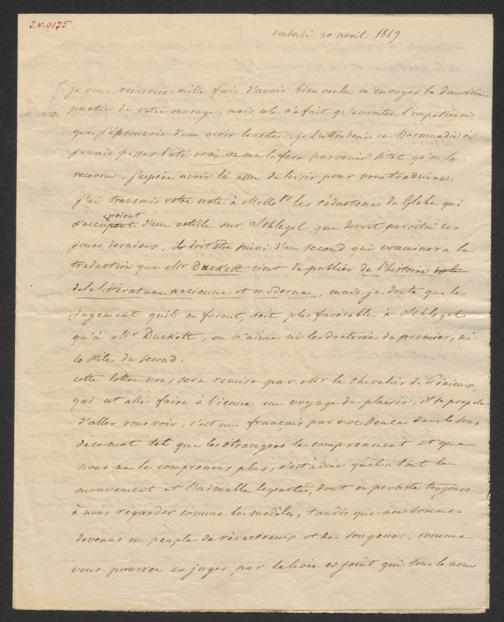 J.N. 9175
vendredi 30 avril 1829
je vous remercie mille fois d'avoir bien voulu m'envoyer la deuxième
partie de votre ouvrage, mais cela n'a fait qu'accroitre l'impatience
que j'éprouvais d'en avoir le reste, je l'attendrai en Normandie où
je vais passer l'été on me la fera parvenir sitot qu'on le
recevra, j'espère avoir là assez de loisir pour vous traduire.
j'ai transmis votre note à Mess.rs les rédacteurs du Globe qui
s'occupoient d'un article sur Schlegel qui devoit paroitre ces
jours derniers, il doit être suivi d'un second qui examinera la
traduction que Mr Duckett vient de publier de l'histoire
de la litterature ancienne et moderne, mais je doute que le
jugement qu'ils en feront, soit plus favorable à Schlegel
qu'à Mr Duckett, on n'aime ni les doctrines du premier, ni
le stile du second.
cette lettre vous sera remise par Mr le chevalier de
qui est allé faire à Vienne un voyage de plaisir, il se propose
d'aller vous voir, c'est un francais par excellence dans le sens
de ce mot tel que les étrangers le comprennent et que
nous ne le comprenons plus, c'est à dire qu'il a tout le
mouvement et l'aimable legereté, dont on persiste toujours
à nous regarder comme les modèles, tandis que nous sommes
devenus un peuple de rêveurs et de songeurs, comme
vous pourrez en juger par le livre ci joint qui sous le nom